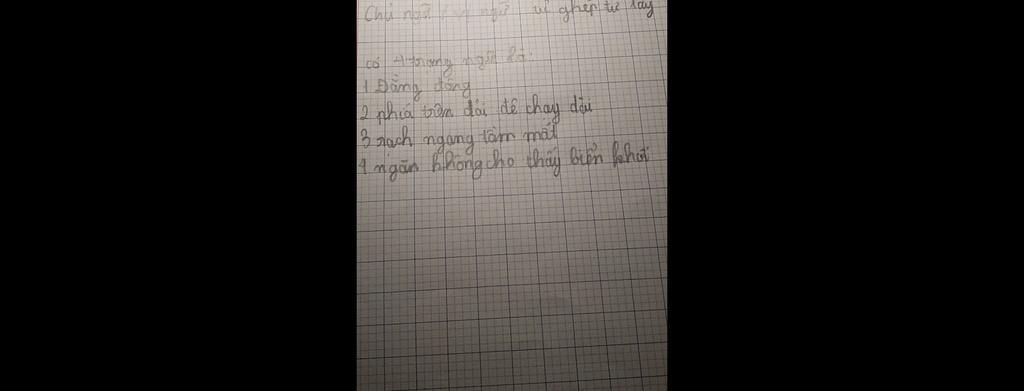 Chủ ngữ ngữ vì ghép từ láy
có 4 trạng ngữ là:
1 Đằng đông
2 phía trên dải đê chạy dài
3 rạch ngang tầm mắt
4 ngăn không cho thấy biển khơi